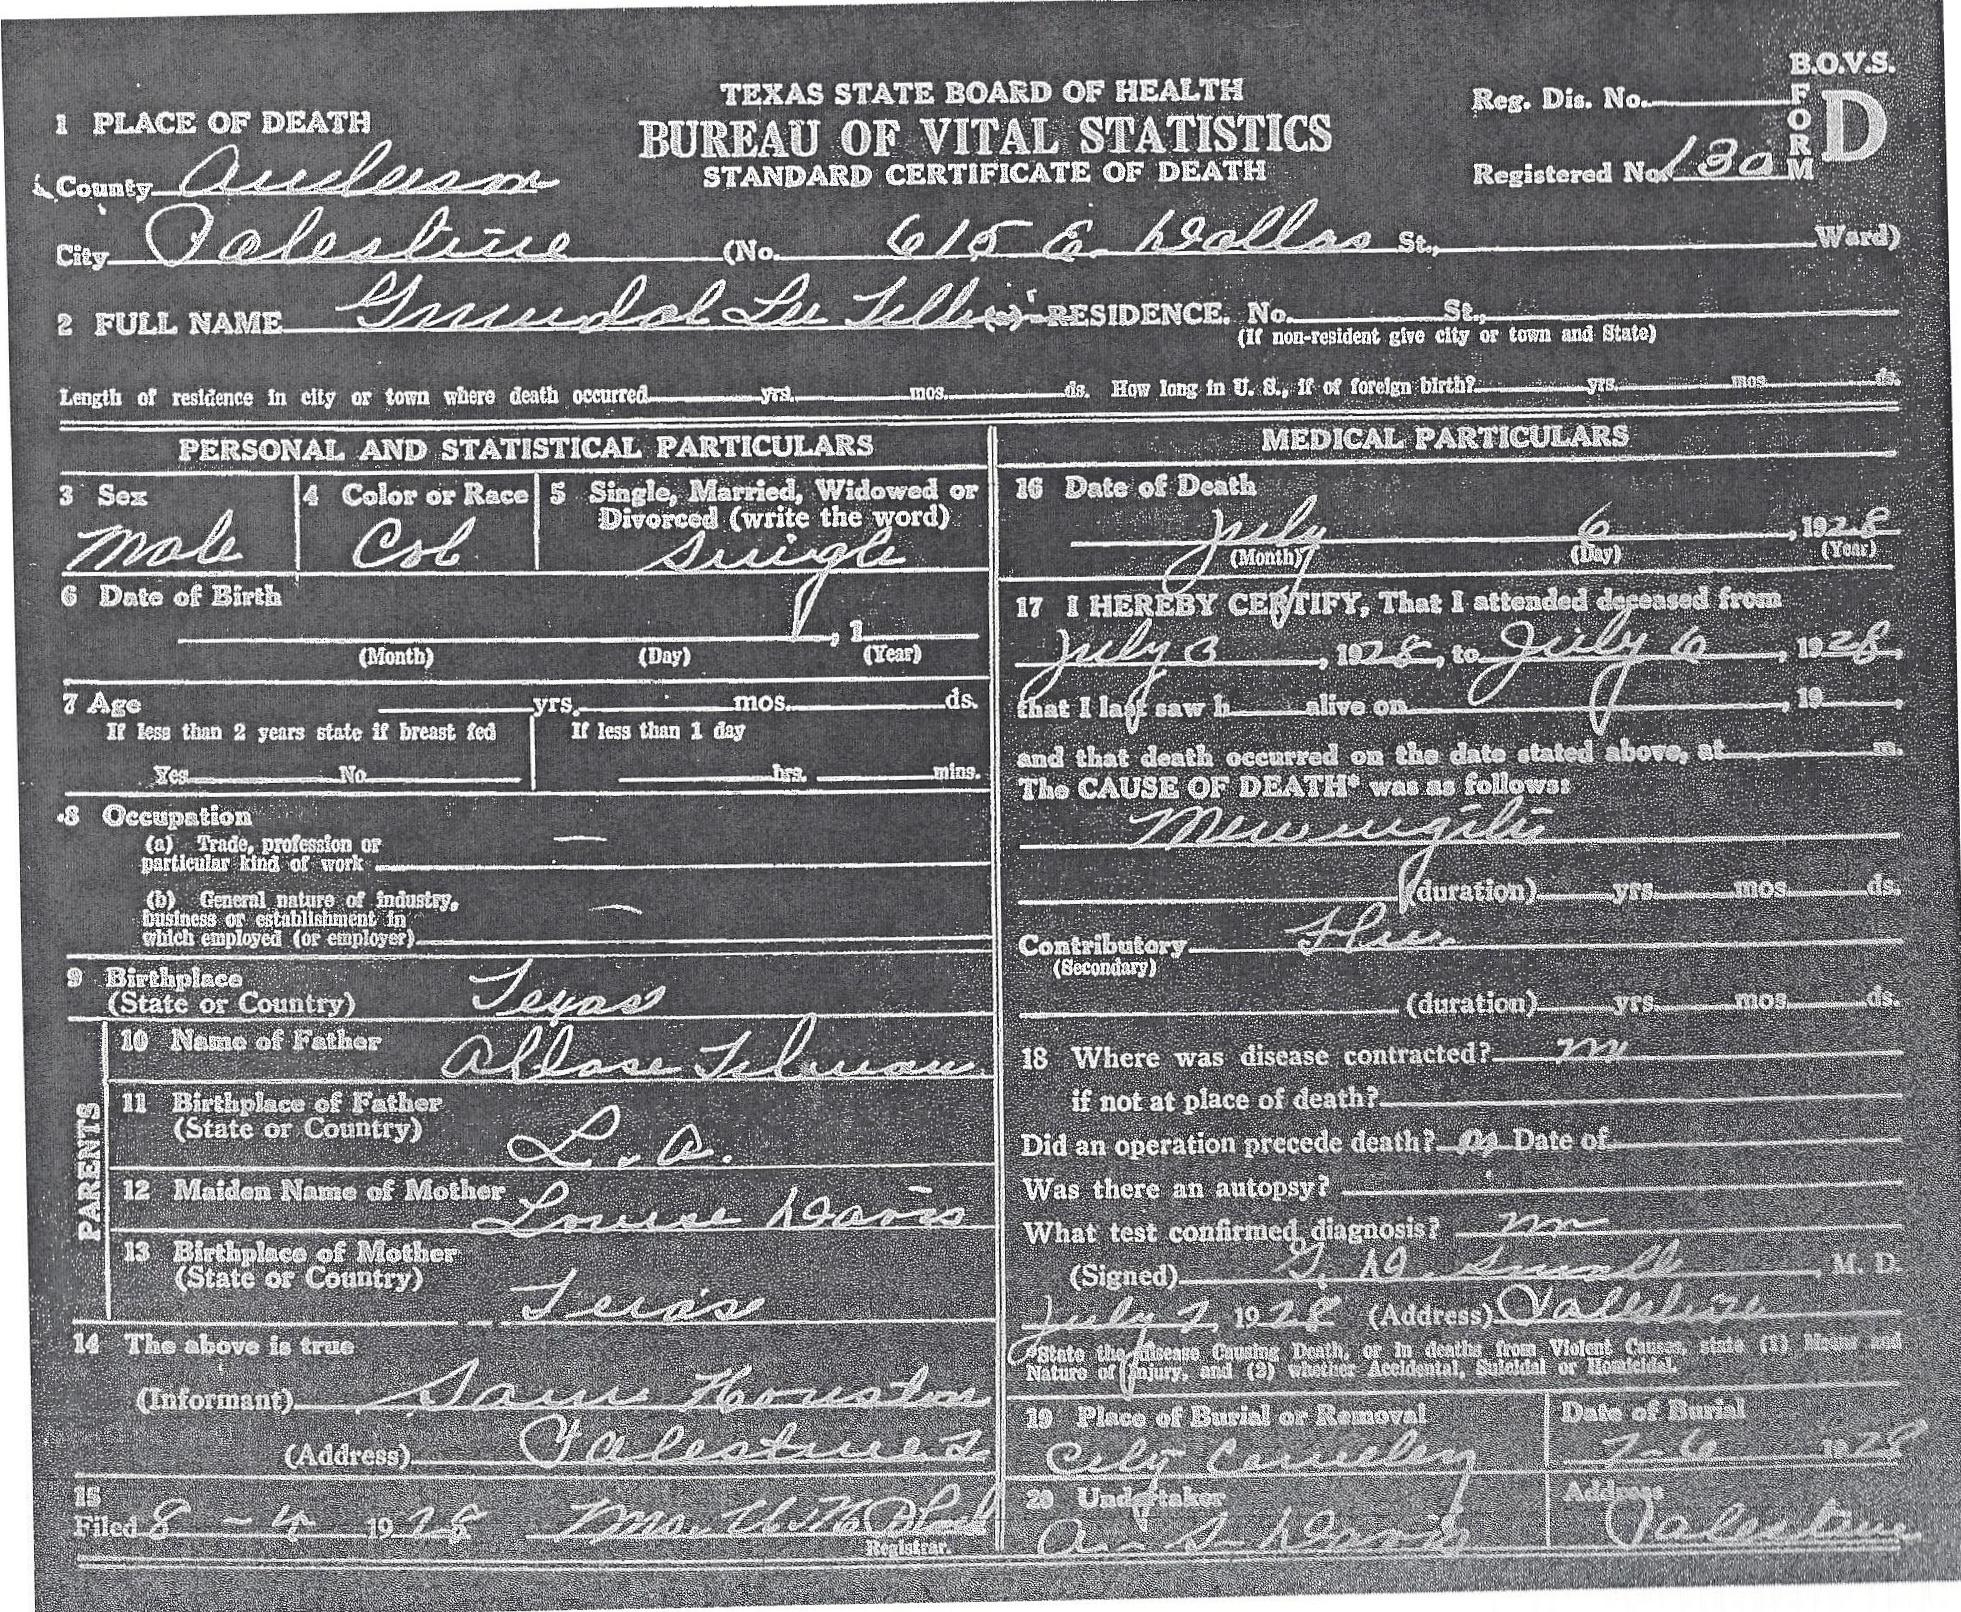 B.O.V.S.
FORM D
TEXAS STATE BOARD OF HEALTH
BUREAU OF VITAL STATISTICS
STANDARD CERTIFICATE OF DEATH
Reg. Dis. No.
Registered No. 130
1 PLACE OF DEATH
County Anderson
City Palestine (No. 615 E. Dallas St., Ward)
2 FULL NAME Lee RESIDENCE. No. St.,
(If non-resident give city or town and State)
Length of residence in city or town where death occurred yrs. mos. ds. How long in U. S., if of foreign birth? yrs. mos. ds.
PERSONAL AND STATISTICAL PARTICULARS
3 Sex
Male
4 Color or Race
Col
5 Single, Married, Widowed or
Divorced (write the word)
Single
6 Date of Birth
, 1
(Month) (Day) (Year)
7 Age yrs. mos. ds.
If less than 2 years state if breast fed
Yes No
If less than 1 day
hrs. mins.
8 Occupation
(a) Trade, profession or
particular kind of work —
(b) General nature of industry,
business or establishment in
which employed (or employer) —
9 Birthplace
(State or Country) Texas
PARENTS
10 Name of Father
11 Birthplace of Father
(State or Country) L.a.
12 Maiden Name of Mother Louise Davis
13 Birthplace of Mother
(State or Country) Texas
14 The above is true
(Informant) Sam Houston
(Address) Palestine T
15
Filed 8 - 4 1928
Registrar.
MEDICAL PARTICULARS
16 Date of Death
July 6, 1928
(Month) (Day) (Year)
17 I HEREBY CERTIFY, That I attended deceased from
July 3, 1928, to July 6, 1928,
that I last saw h alive on , 19 ,
and that death occurred on the date stated above, at m.
The CAUSE OF DEATH* was as follows:
Meningitis
(duration) yrs. mos. ds.
Contributory Flu
(Secondary)
(duration) yrs. mos. ds.
18 Where was disease contracted?
if not at place of death?
Did an operation precede death? no Date of
Was there an autopsy?
What test confirmed diagnosis?
(Signed) Small, M. D.
July 7, 1928 (Address) Palestine
*State the disease Causing Death, or in deaths from Violent Causes, state (1) Means and
Nature of Injury, and (2) whether Accidental, Suicidal or Homicidal.
19 Place of Burial or Removal
City Cemetery
Date of Burial
7-6 1928
20 Undertaker
A. S. Davis
Address
Palestine